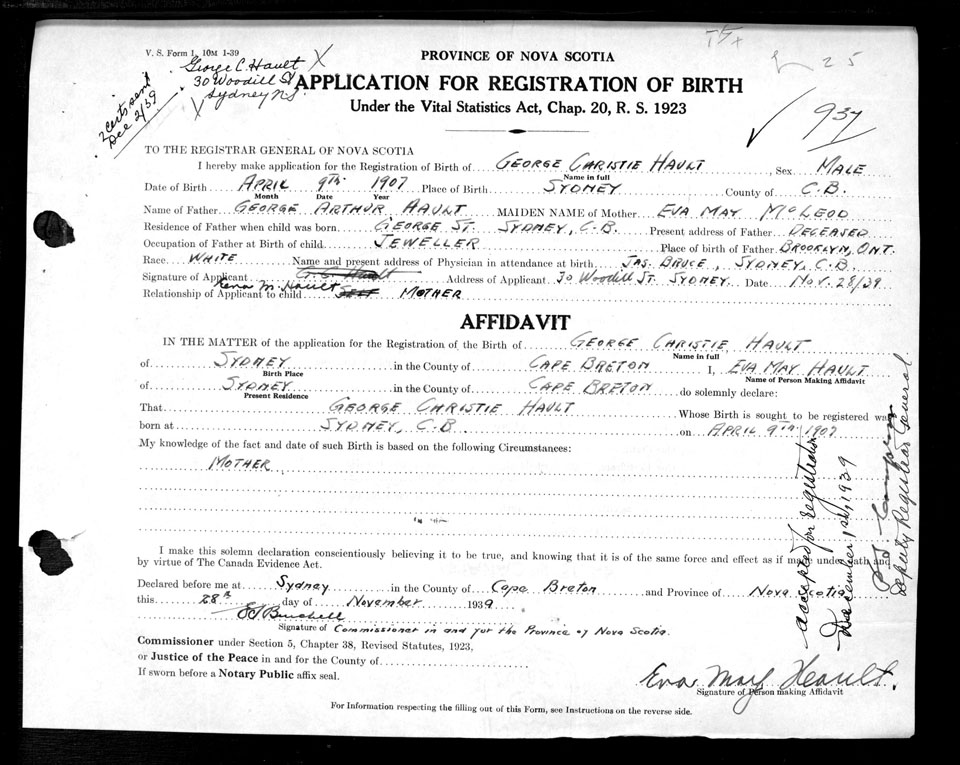 V. S. Form 1. 10M 1-39
George C. Hault X
30 Woodill St
X Sydney N.S.
2 certs sent
Dec 2/39
25
937
PROVINCE OF NOVA SCOTIA
APPLICATION FOR REGISTRATION OF BIRTH
Under the Vital Statistics Act, Chap. 20, R. S. 1923
TO THE REGISTRAR GENERAL OF NOVA SCOTIA
I hereby make application for the Registration of Birth of GEORGE CHRISTIE HAULT, Sex MALE
Name in full
Date of Birth APRIL 9TH 1907 Place of Birth SYDNEY County of C.B.
Month Date Year
Name of Father GEORGE ARTHUR HAULT MAIDEN NAME of Mother EVA MAY McLEOD
Residence of Father when child was born GEORGE ST. SYDNEY, C.B. Present address of Father DECEASED
Occupation of Father at Birth of child JEWELLER Place of birth of Father BROOKLYN, ONT.
Race WHITE Name and present address of Physician in attendance at birth JAS. BRUCE, SYDNEY, C.B.
Signature of Applicant G. C. Hault Address of Applicant 30 Woodill St. SYDNEY. Date NOV. 28/39
M. Hault
Relationship of Applicant to child SELF MOTHER
AFFIDAVIT
IN THE MATTER of the application for the Registration of the Birth of GEORGE CHRISTIE HAULT
Name in full
of SYDNEY in the County of CAPE BRETON I, EVA MAY HAULT
Birth Place Name of Person Making Affidavit
of SYDNEY in the County of CAPE BRETON do solemnly declare:
Present Residence
That GEORGE CHRISTIE HAULT Whose Birth is sought to be registered was
born at SYDNEY, C.B. on APRIL 9TH 1907
My knowledge of the fact and date of such Birth is based on the following Circumstances:
MOTHER
I make this solemn declaration conscientiously believing it to be true, and knowing that it is of the same force and effect as if made under oath and
by virtue of The Canada Evidence Act.
Declared before me at Sydney in the County of Cape Breton and Province of Nova Scotia
this 28th day of November 1939
Signature of Commissioner in and for the Province of Nova Scotia.
Commissioner under Section 5, Chapter 38, Revised Statutes, 1923,
or Justice of the Peace in and for the County of
If sworn before a Notary Public affix seal.
Eva May Heault.
Signature of Person making Affidavit
For Information respecting the filling out of this Form, see Instructions on the reverse side.
accepted for registration
December 1st, 1939
Deputy Registrar General